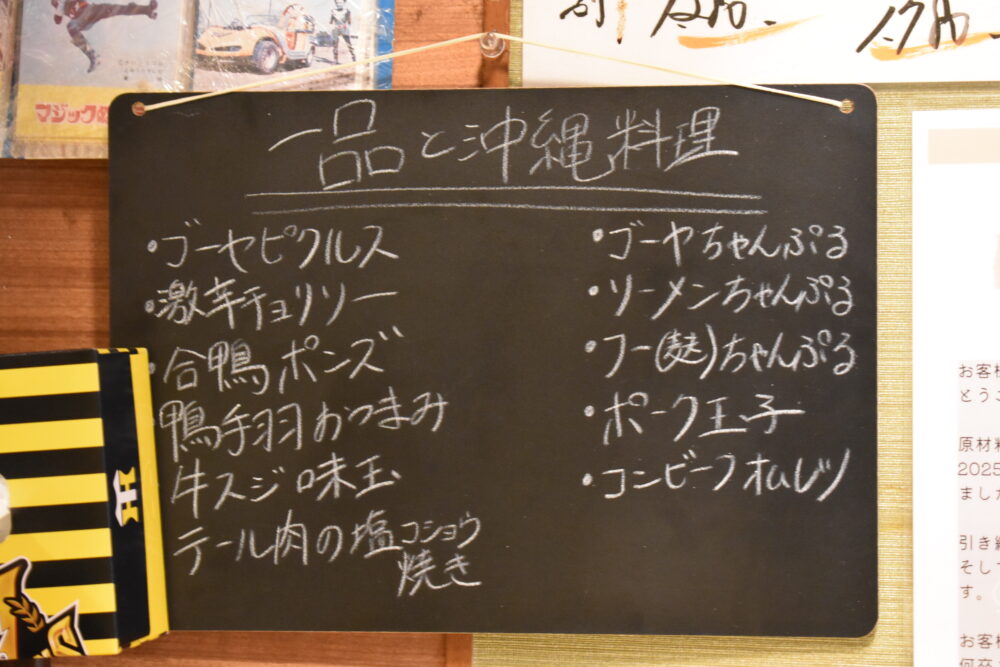 マジック
一品と沖縄料理
・ゴーヤピクルス
・激辛チョリソー
・合鴨ポンズ
鴨手羽おつまみ
牛スジ味玉
テール肉の塩コショウ
焼き
・ゴーヤちゃんぷる
・ソーメンちゃんぷる
・フー(麩)ちゃんぷる
・ポーク王子
・コンビーフオムレツ
H
お客
とうご
原材
2025
ました
引き続
そして
す。
お客
何卒